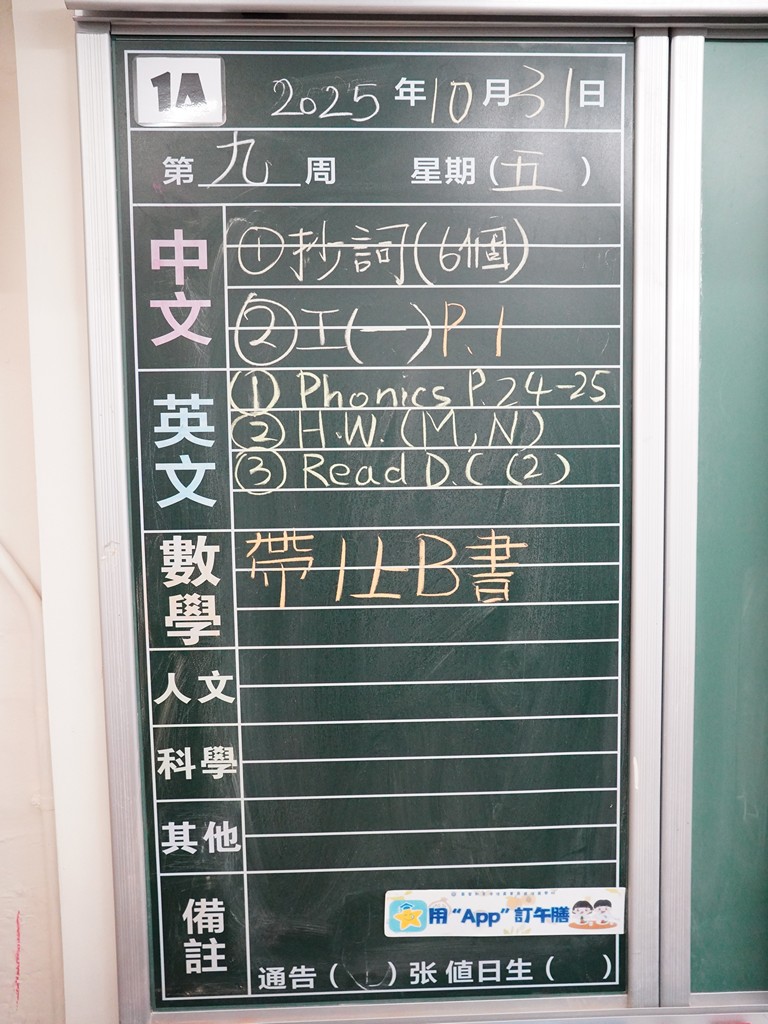 1A 2025年10月31日
第九周 星期(五)
中文
①抄詞(6個)
②工(一)P.1
英文
① Phonics P.24-25
② H.W. (M,N)
③ Read D.C (2)
數學
帶1上B書
人文
科學
其他
備註
用“App”訂午膳
通告( )张 值日生( )